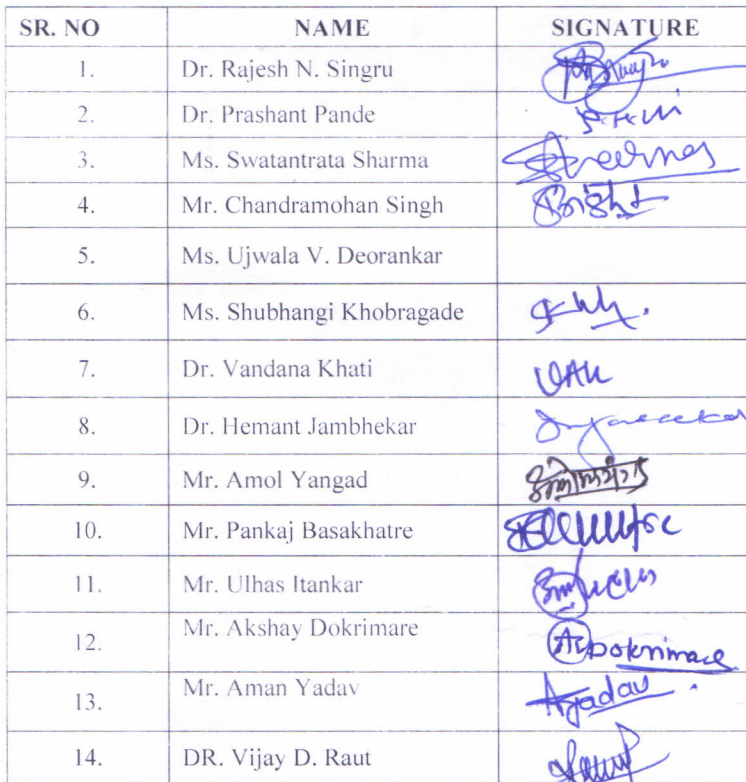 SR. NO NAME SIGNATURE
1. Dr. Rajesh N. Singru
2. Dr. Prashant Pande
3. Ms. Swatantrata Sharma
4. Mr. Chandramohan Singh
5. Ms. Ujwala V. Deorankar
6. Ms. Shubhangi Khobragade
7. Dr. Vandana Khati
8. Dr. Hemant Jambhekar
9. Mr. Amol Yangad
10. Mr. Pankaj Basakhatre
11. Mr. Ulhas Itankar
12. Mr. Akshay Dokrimare ADokrimare
13. Mr. Aman Yadav AYadav
14. DR. Vijay D. Raut